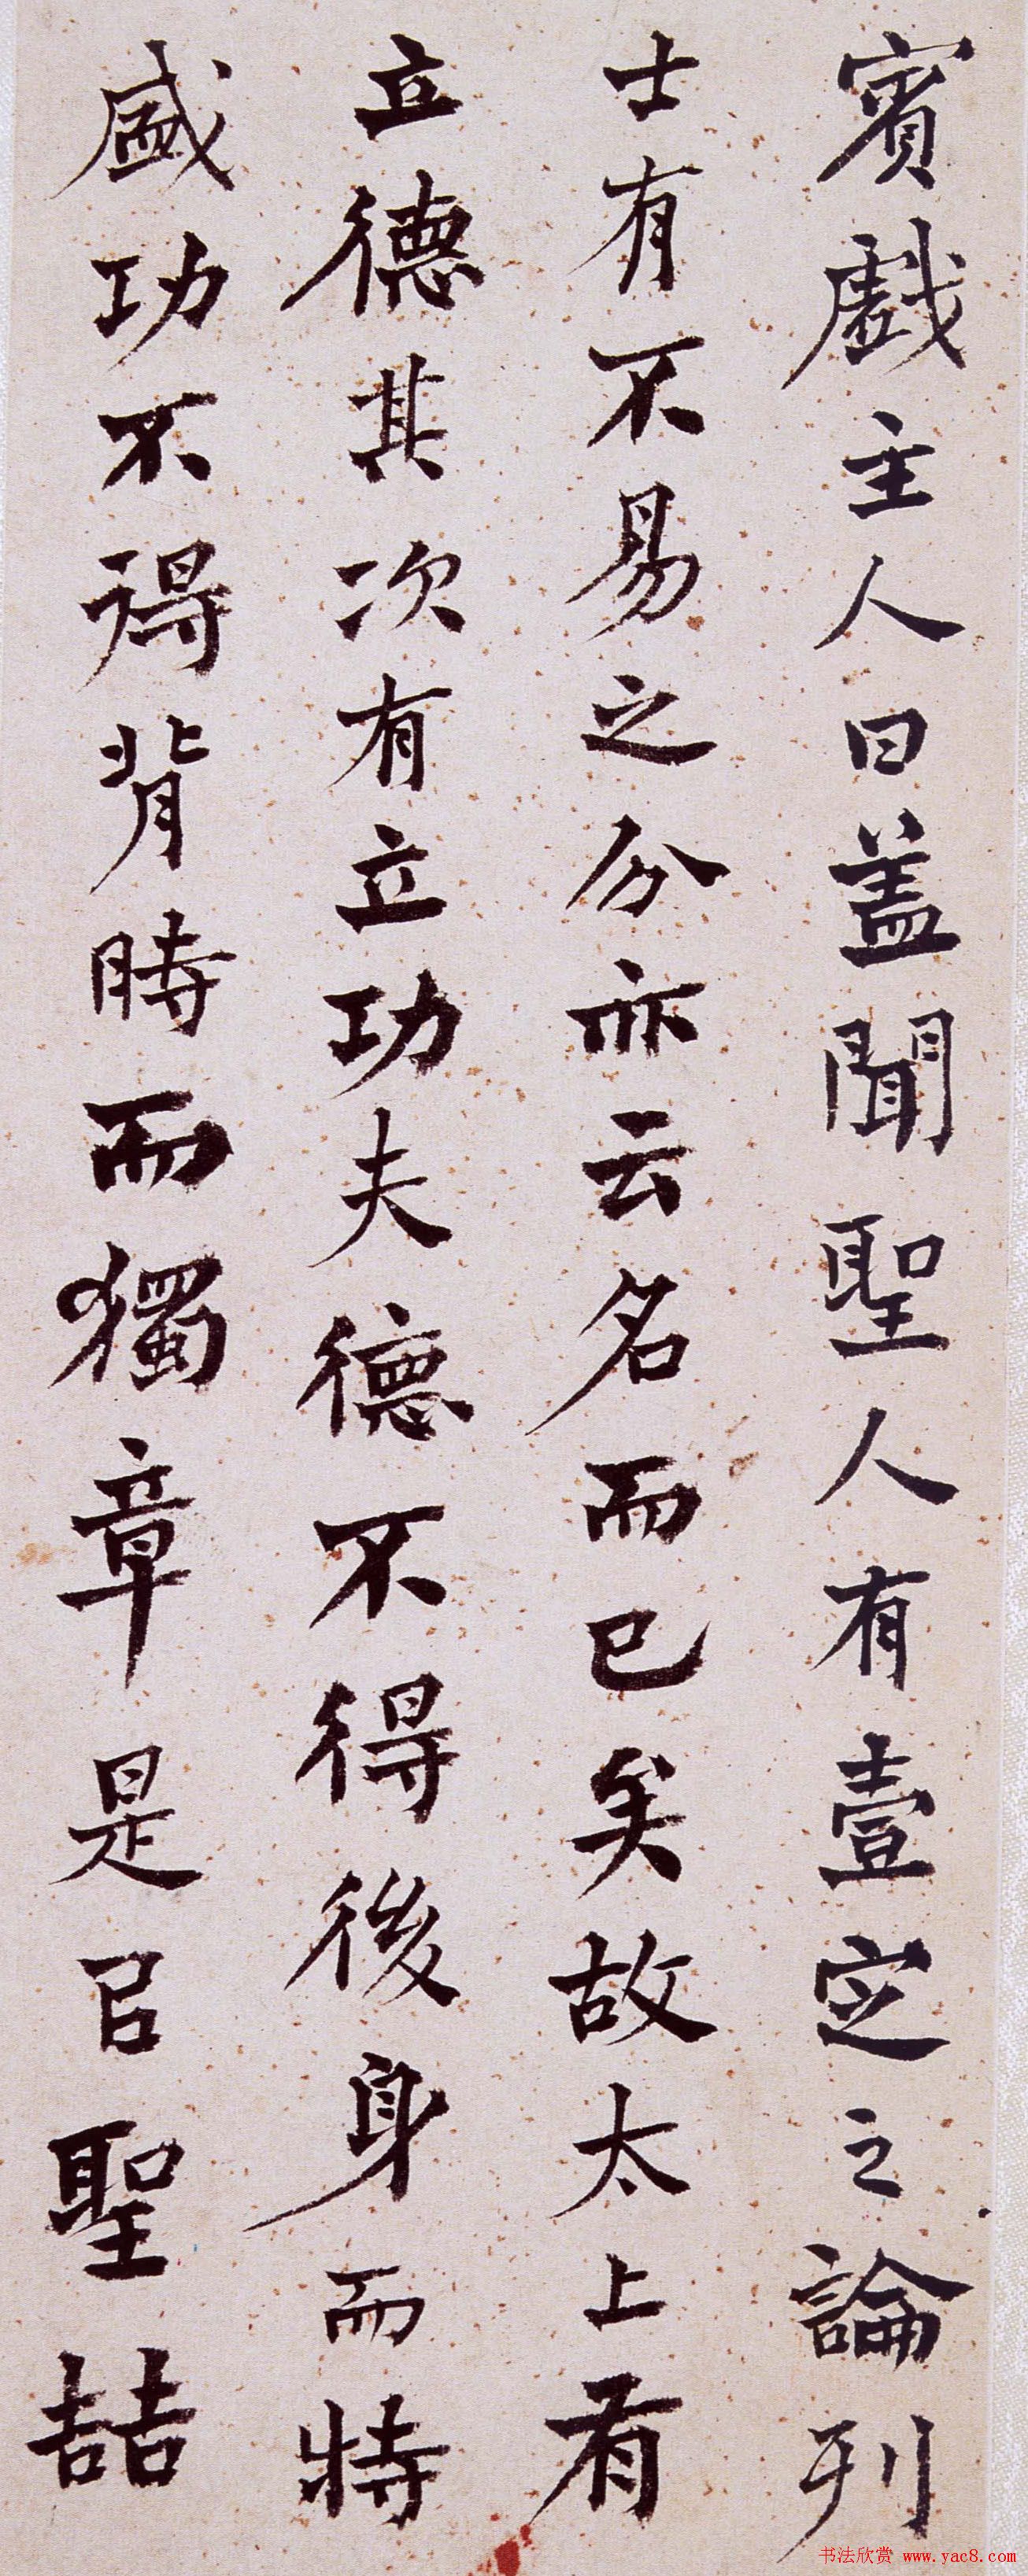 賓戲主人曰蓋聞聖人有壹定之論列
士有不易之分亦云名而已矣故太上有
立德其次有立功夫德不得後身而特
盛功不得背時而獨章是㠯聖喆
书法欣赏 www.yac8.com